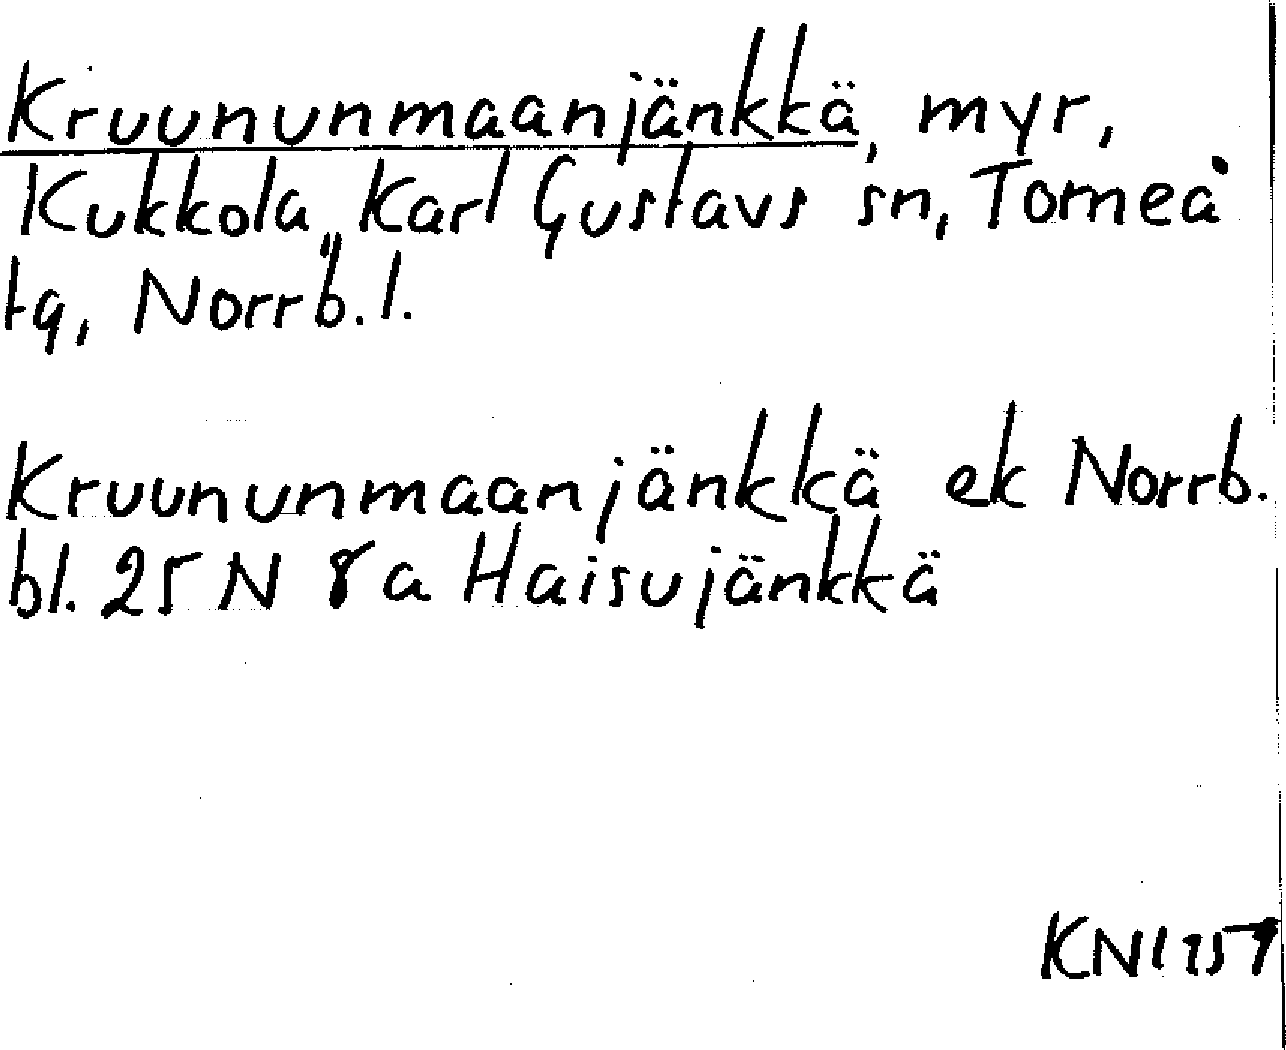 Kruununmaanjänkkä, myr,
Kukkola, Karl Gustavs sn, Torneå
tg, Norrb. l.
Kruununmaanjänkkä ek Norrb.
bl. 25 N 8a Haisujänkkä